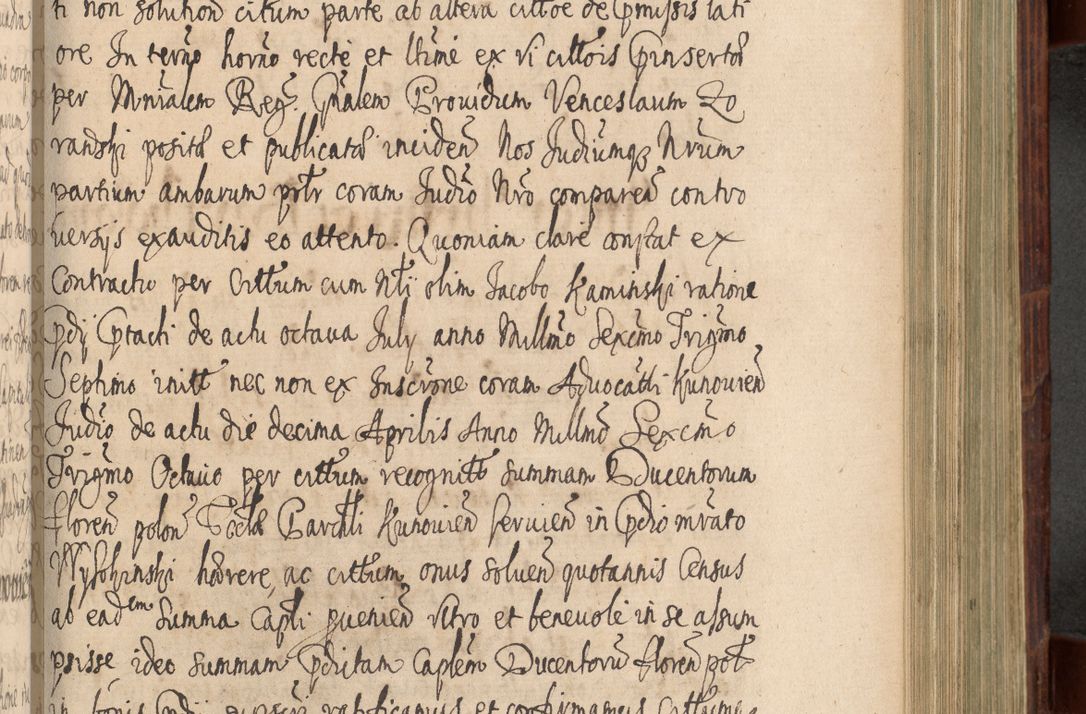 ti non solution citum parte ab altera cittoe de Cpmissis lati
ore In termo horno recte et ltime ex vi cittois Cpinsertos
per Mnralem Reg. Gnalem Providum Venceslaum Zo
ranski posita et publicata inciden Nos Judiumq Nrum
partium ambarum prtr coram Judio Nro comparen contro
versijs exauditis eo attento. Quoniam clare constat ex
Contractu per Cittum cum Ntj olim Jacobo Kaminski ratione
Cpdij Cptacti de actu octava July anno Millmo Sexcmo Trigmo
Septimo initt nec non ex Inscrone coram Advocatti Kunovien
Judio de actu die decima Aprilis Anno Millmo Sexcmo
Trigmo Octavo per cittum recognitt summam Ducentorum
floren polon Eccla Parchli Kunovien servien in Cpdio mrato
Wysokinski hærere, ac cittum onus solven quotannis Census
ab ead em Summa Capli provenien ultro et benevole in se assum
psisse, ideo summam Cpdictam Caplem Ducentoru floren pol
in bonis ratificamus et confirmamus Cittumq